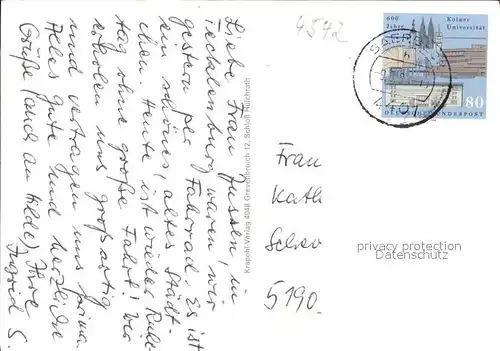 Liebe Frau Jussen, in
Tecklenburg waren wir
gestern per Fahrrad. Es ist
ein schönes, altes Städt-
chen. Heute ist wieder Ruhe-
tag ohne große Fahrt! Wir
erholen uns großartig
und vertragen uns prima.
Alles Gute und herzliche
Grüße (auch an Hilde), Ihre
Ingrid S.
Krapohl-Verlag 4048 Grevenbroich 12, Schloß Hülchrath
4542
600 Jahre Kölner Universität
80
DEUTSCHE BUNDESPOST
Frau
Kath
5190
privacy protection
Datenschutz